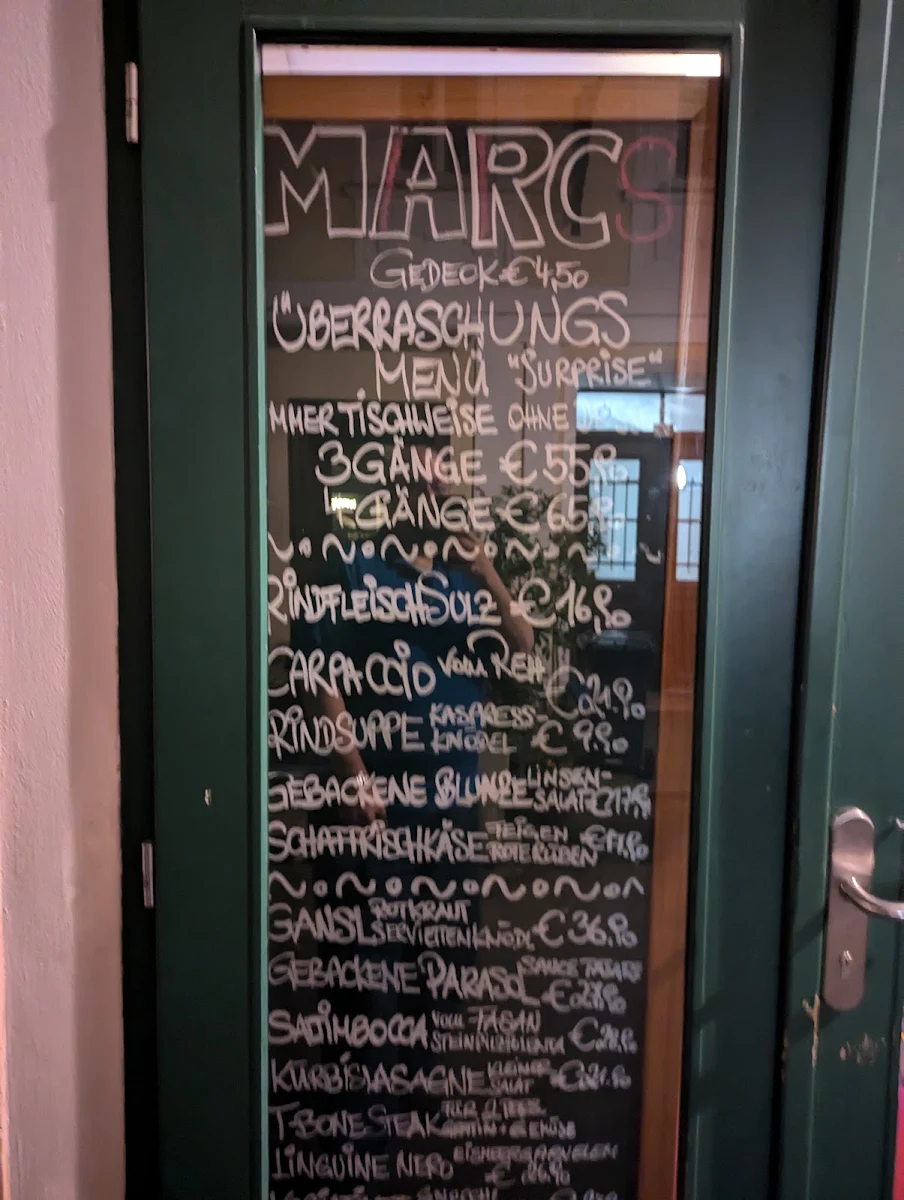 MARCS
GEDECK € 4,50
ÜBERRASCHUNGS
MENÜ "SURPRISE"
MMER TISCHWEISE OHNE
3 GÄNGE € 55,90
4 GÄNGE € 65,90
RINDFLEISCHSULZ € 16,90
CARPACCIO VOM REH € 21,90
RINDSUPPE KASPRESS-
KNÖDEL € 9,90
GEBACKENE BLUNZE LINSEN-
SALAT € 17,90
SCHAFFRISCHKÄSE FEIGEN
ROTE RÜBEN € 17,90
GANSL ROTKRAUT
SERVIETTENKNÖDL € 36,90
GEBACKENE PARASOL SAUCE TATARE
€ 28,90
SALTIMBOCCA VOM FASAN
STEINPILZPOLENTA € 28,90
KÜRBISLASAGNE KLEINER
SALAT € 21,90
T-BONE STEAK FÜR 2
LINGUINE NERO EISMEERGARNELEN
€ 26,90